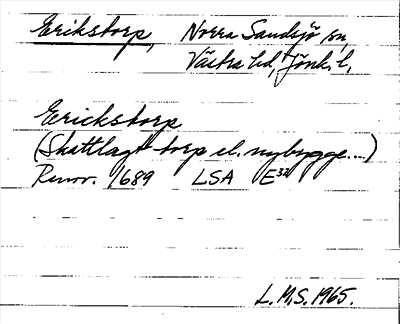 Erikstorp, Norra Sandsjö sn,
Västra hd, Jönk. l,
Erickstorp
(Skattlagt torp el. nybygge....)
Renov. 1689 LSA E32
L.M.S. 1965.